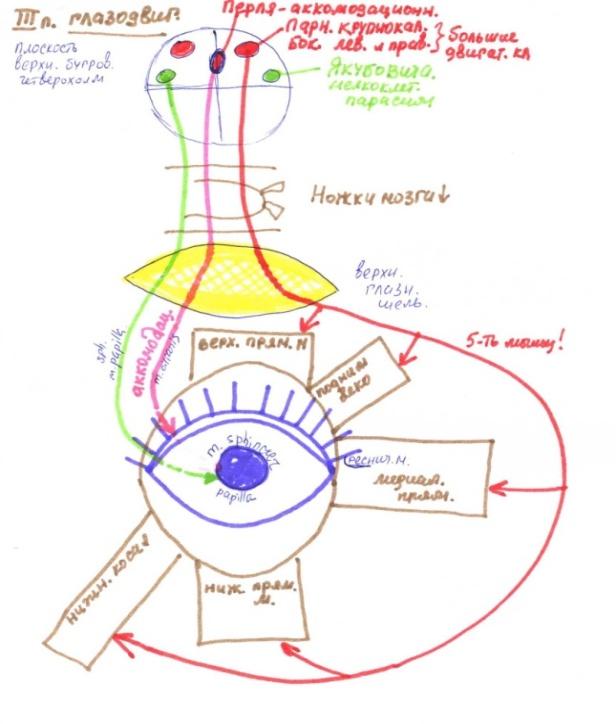 III п. глазодвиг.
плоскость
верхн. бугров.
четверохолм
Перля-аккомодационн.
Парн. крупнокл.
бок. лев. и прав.
Большие
двигат. кл
Якубовича.
мелкоклет.
парасим
Ножки мозга
верхн.
глазн.
щель.
5-ть мышц!
sph.
m. papilla
аккомодац.
верх. прям. М
подним
веко
m. sphincter
papilla
реснич. м.
медиал.
прям.
нижн. косая
ниж. прям.
М.